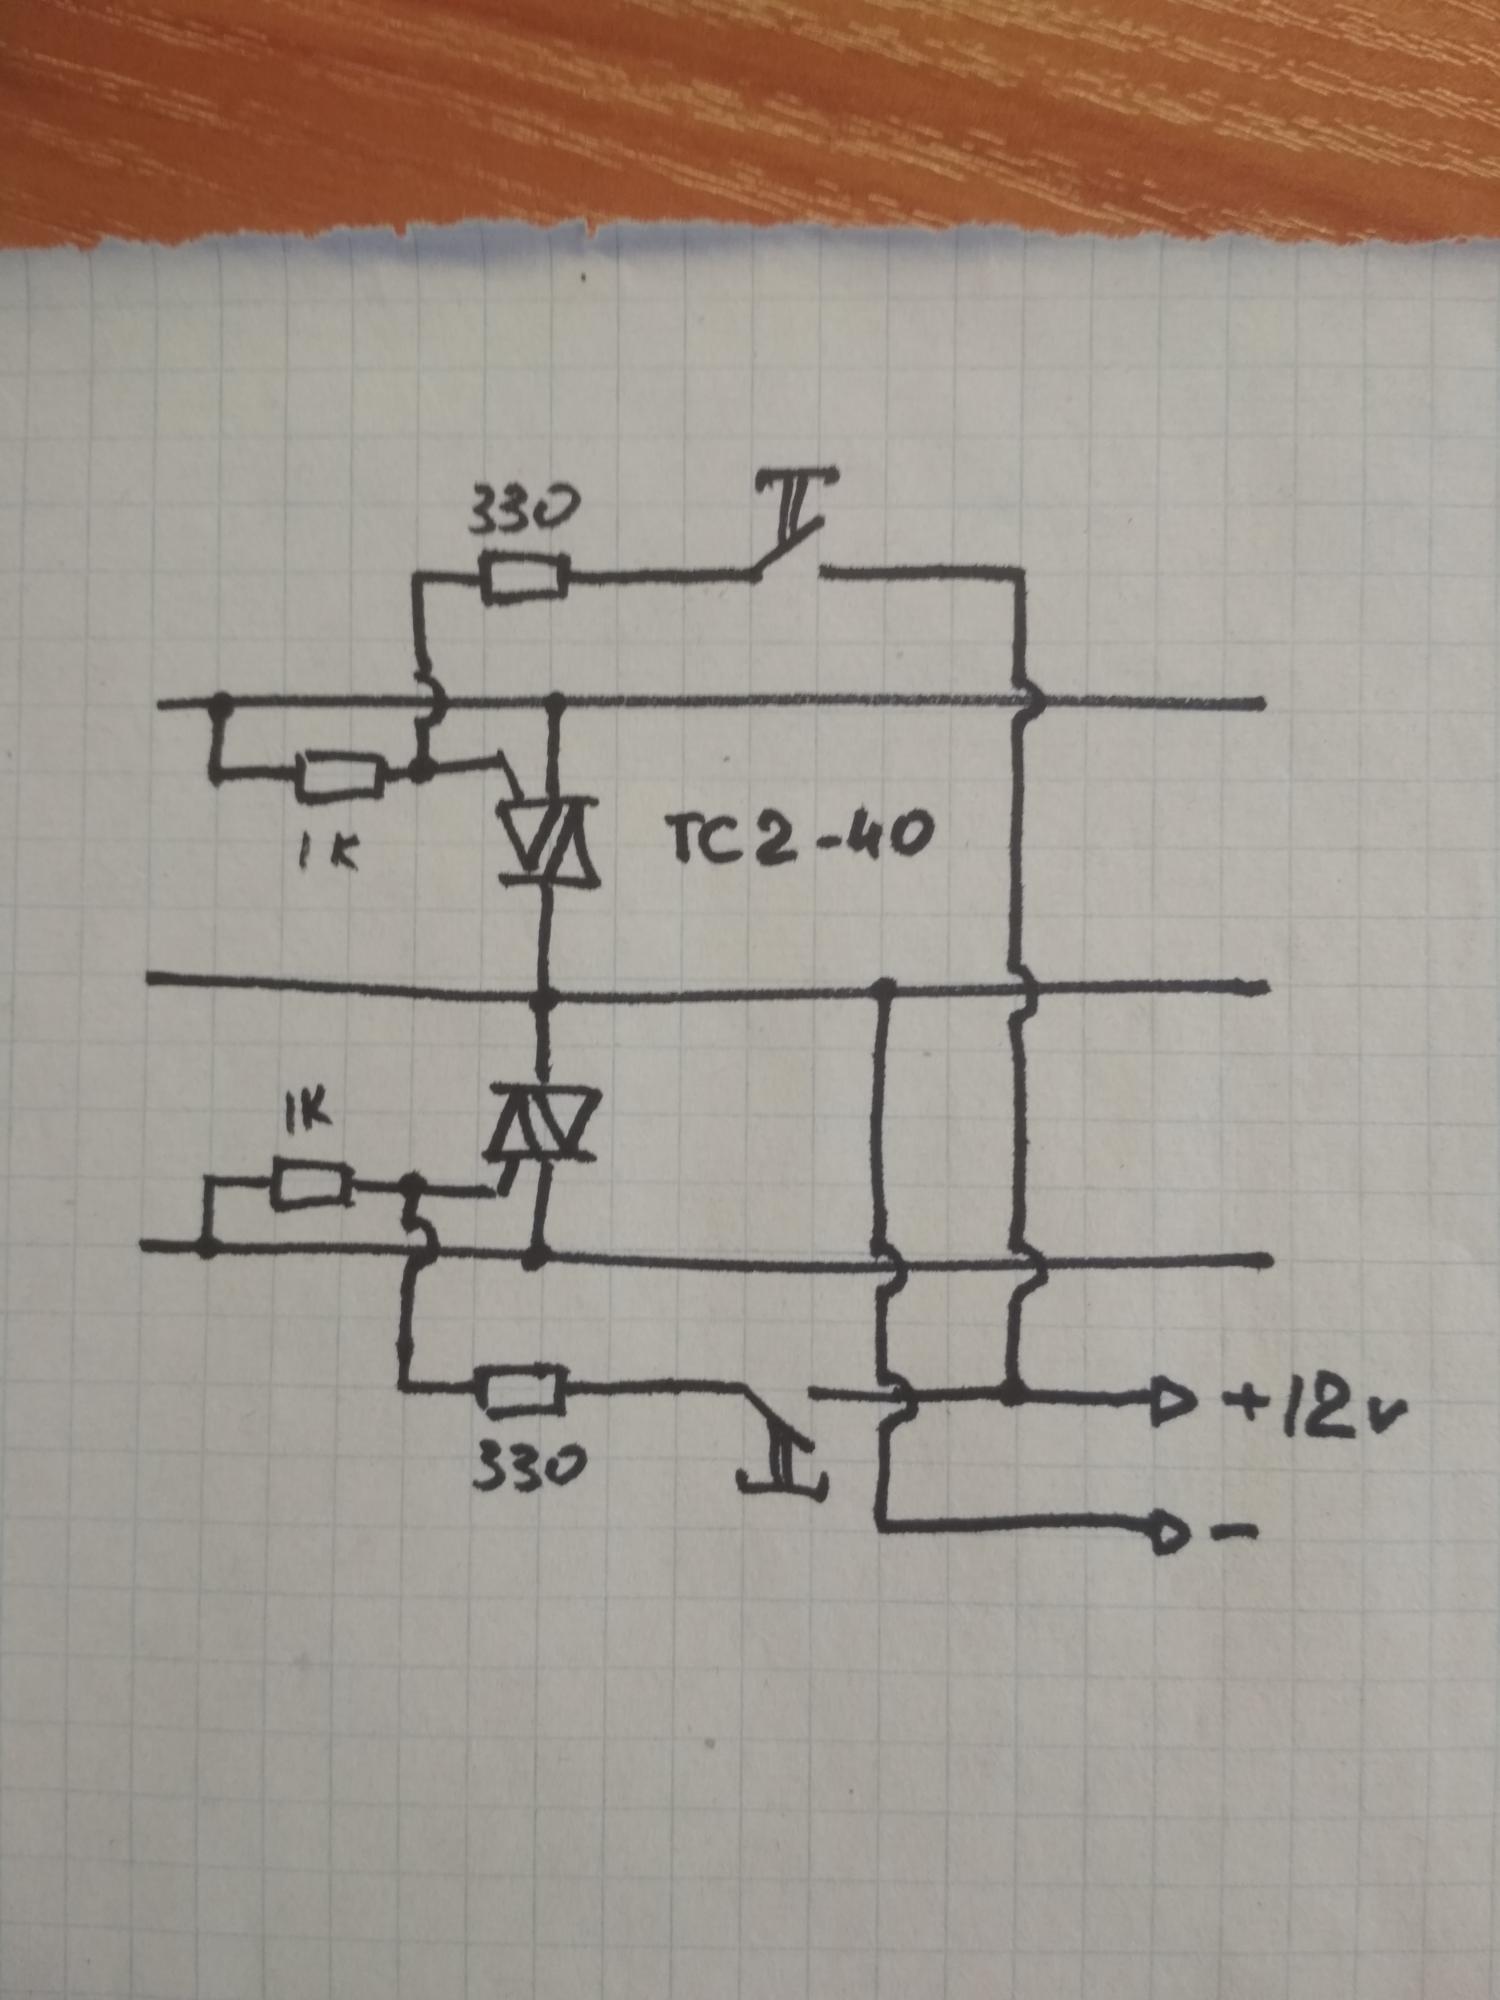 330
1K
TC2-40
1K
330
+12v
-